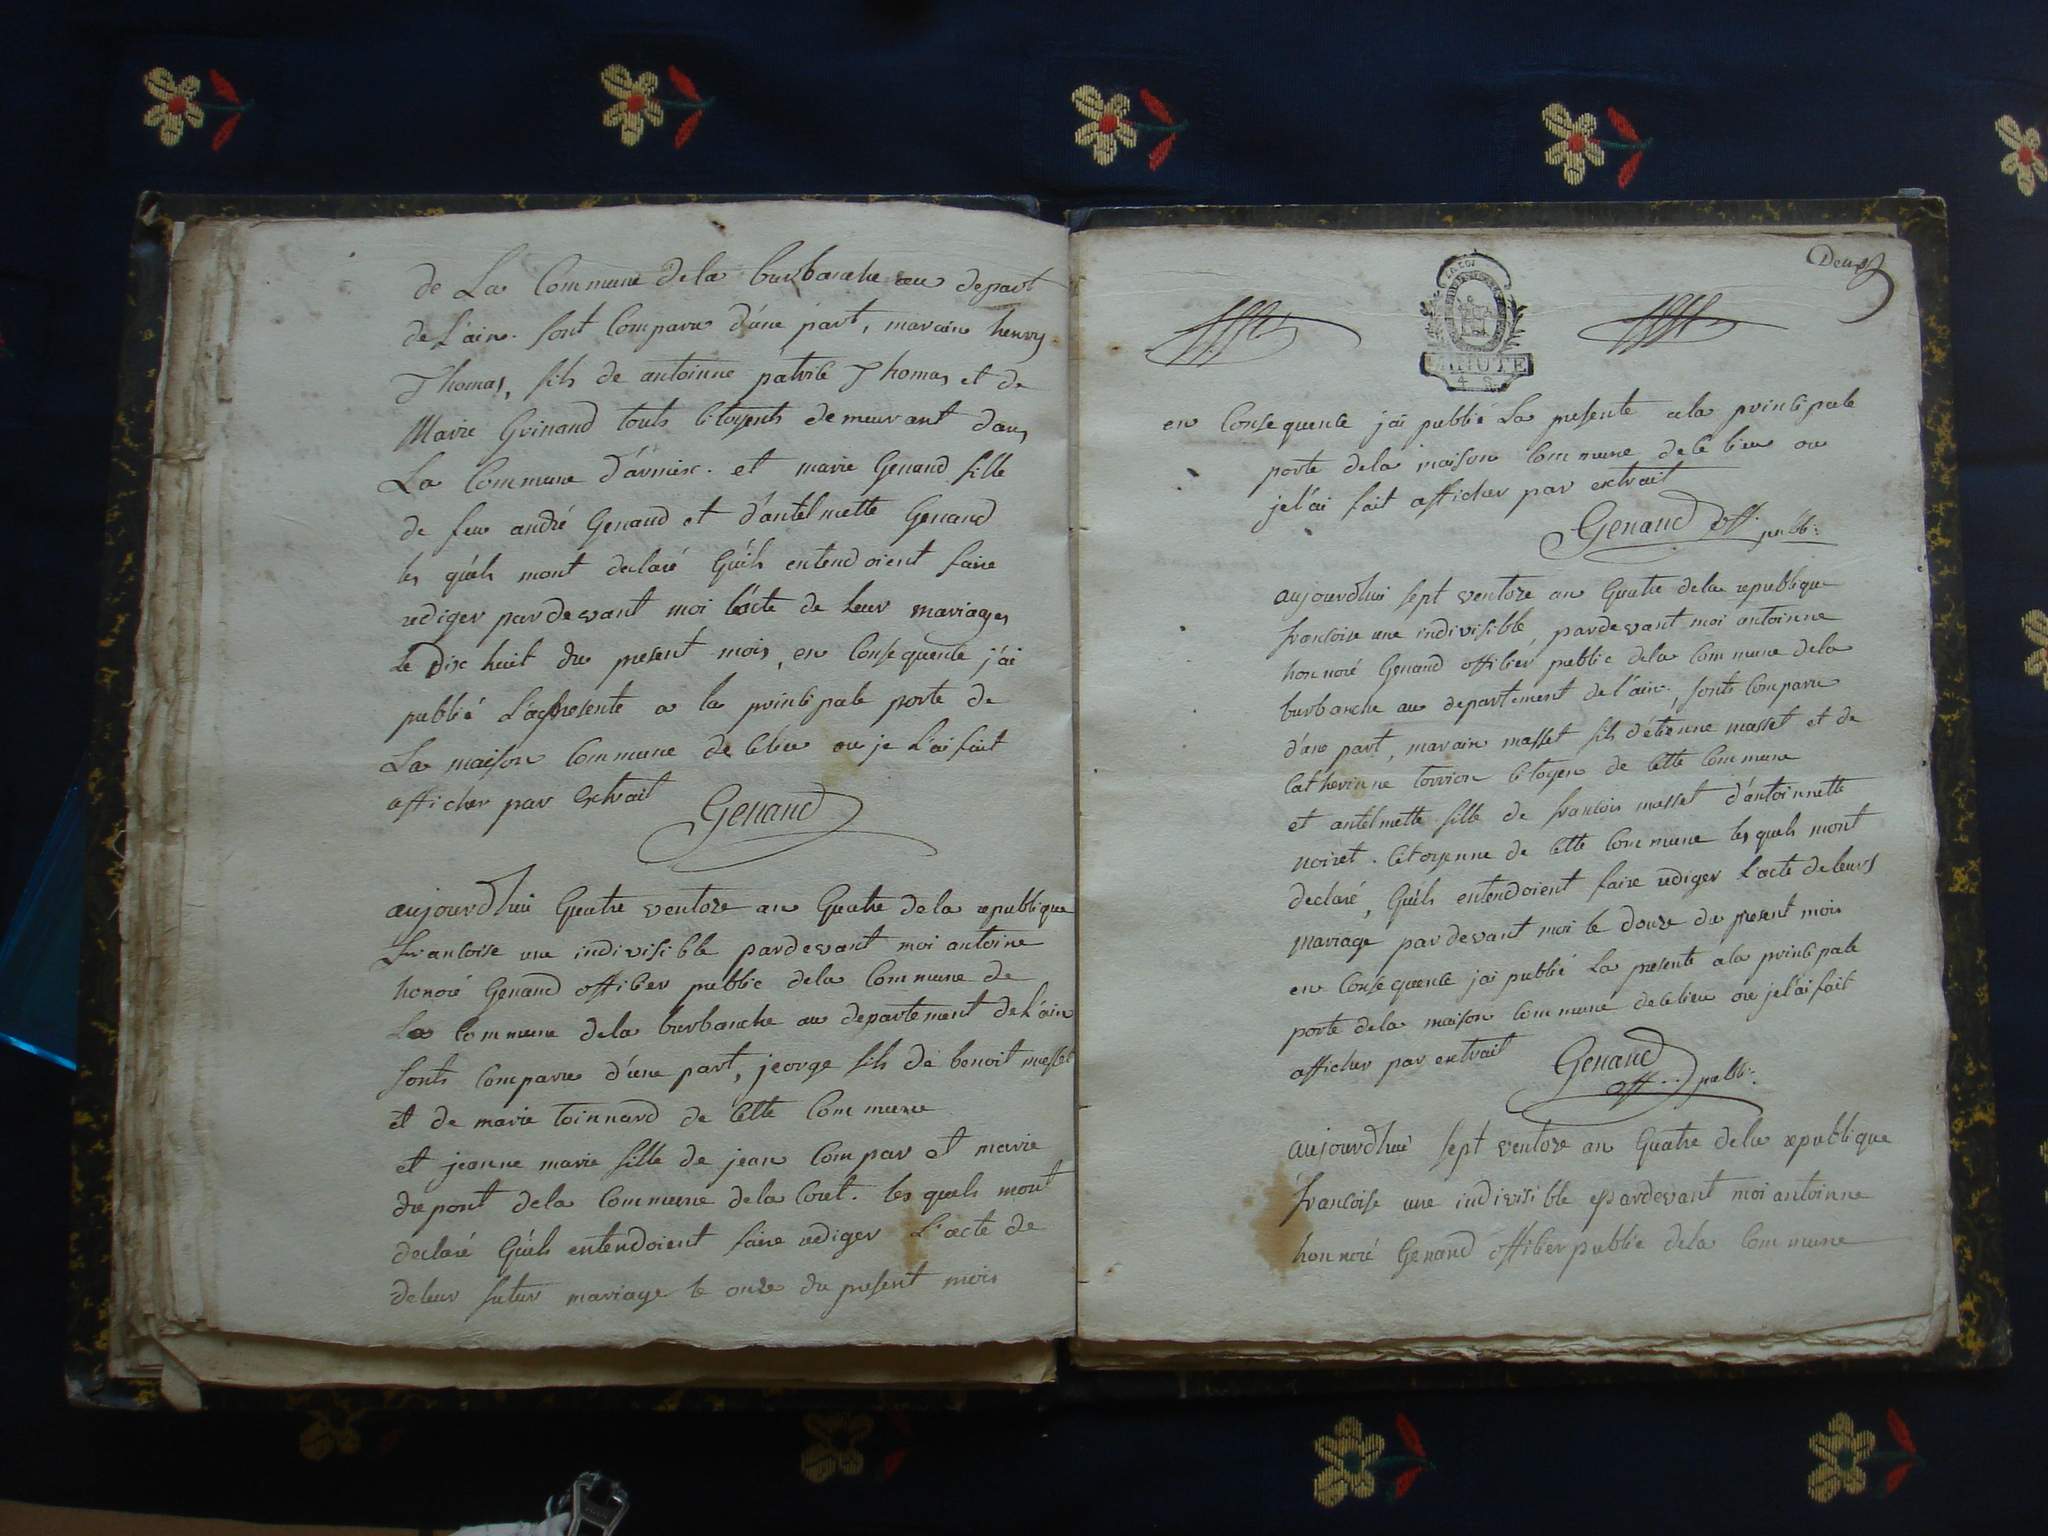 de La Commune dela burbanche au depart
de L'ain. sont Comparu d'une part, marain henry
Thomas, fils de antoinne patrice Thomas et de
Marie Grinand touts Citoyents demeurant dans
La Commune d'armix. et marie Genand fille
de feu andré Genand et d'antelmette Genand
les quels mont declaré Quils entendoient faire
rediger pardevant moi l'acte de leur mariages
Le Dix huit du present mois, en Consequence j'ai
publié La presente a la principale porte de
La maison Commune de Celieu ou je L'ai fait
afficher par Extrait
Genand
aujourdhui Quatre ventoze an Quatre dela republique
francoise une indivisible pardevant moi antoine
honoré Genand officier public dela Commune de
La Commune dela burbanche au departement de L'ain
sonts Comparu d'une part, jeorge fils de benoit masset
et de marie toinnard de Cette Commune
et jeanne marie fille de jean Compar et marie
du pont dela Commune dela Cout. les quels mont
declaré Quils entendoient faire rediger L'acte de
deleur futur mariage le onze du present mois
Deux
LA LOI
MINUTE
4 S.
en Consequence jai publié La presente ala principale
porte dela maison Commune dele lieu ou
jel'ai fait afficher par extrait
Genand off. publi:
aujourdhui sept ventoze an Quatre dela republique
francoise une indivisible, pardevant moi antoinne
honnoré Genand officier public dela Commune dela
burbanche au departement de l'ain, sonts Comparu
d'une part, marain masset fils d'étienne masset et de
Catherinne torrion Citoyen de Cette Commune
et antelmette fille de francois masset d'antoinnette
noiret. Citoyenne de Cette Commune les quels mont
declaré, Quils entendoient faire rediger L'acte deleurs
mariage pardevant moi le douze du present mois
en Consequence jai publié La presente ala principale
porte dela maison Commune decelieu ou jel'ai fait
afficher par extrait
Genand
off.. publi:
aujourdhui sept ventoze an Quatre dela republique
francoise une indivisible pardevant moi antoinne
honnoré Genand officier public dela Commune